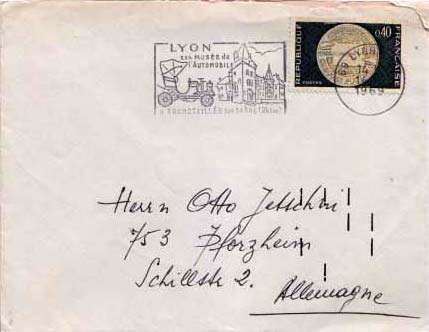 LYON
son MUSÉE de
l'AUTOMOBILE
à ROCHETAILLÉE sur SAÔNE (12km)
REPUBLIQUE
0,40
FRANCAISE
POSTES
69 LYON
1969
Herrn Otto Jetschni
753 Pforzheim
Schillstr 2.
Allemagne